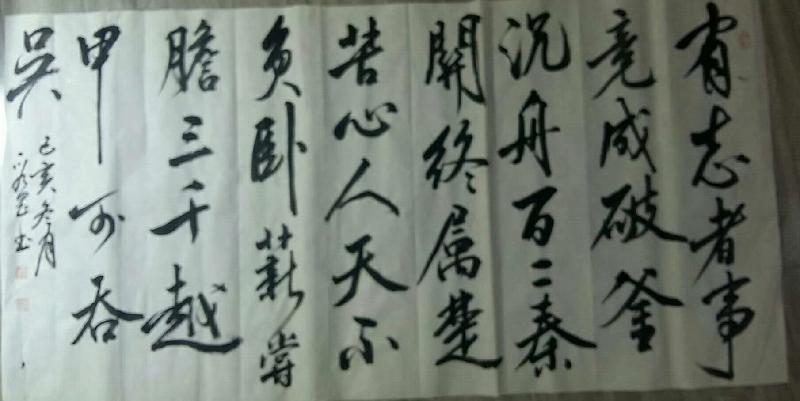 有志者事
竟成破釜
沉舟百二秦
關终属楚
苦心人天不
負卧薪嘗
膽三千越
甲可吞
吴
己亥冬月
书